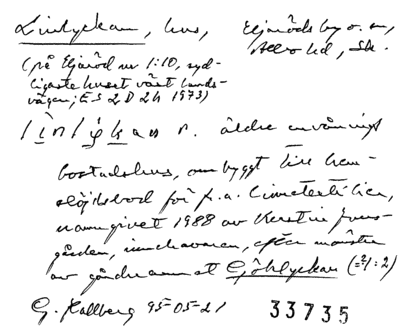 Linlyckan, hus, Eljaröds by o. sn,
Albo hd, Sk.
(på Eljaröd nr 1:10, syd-
ligaste huset väst lands-
vägen; ES 2D 2h 1973)
äldre envånings
bostadshus, ombyggt till hem-
slöjdsbod för bl.a. linetextilier,
namngivet 1988 av Kerstin
gården, innehavaren, efter mönster
av gårdnamnet Göhlyckan (=21:2)
G. Hallberg 95-05-21 33735